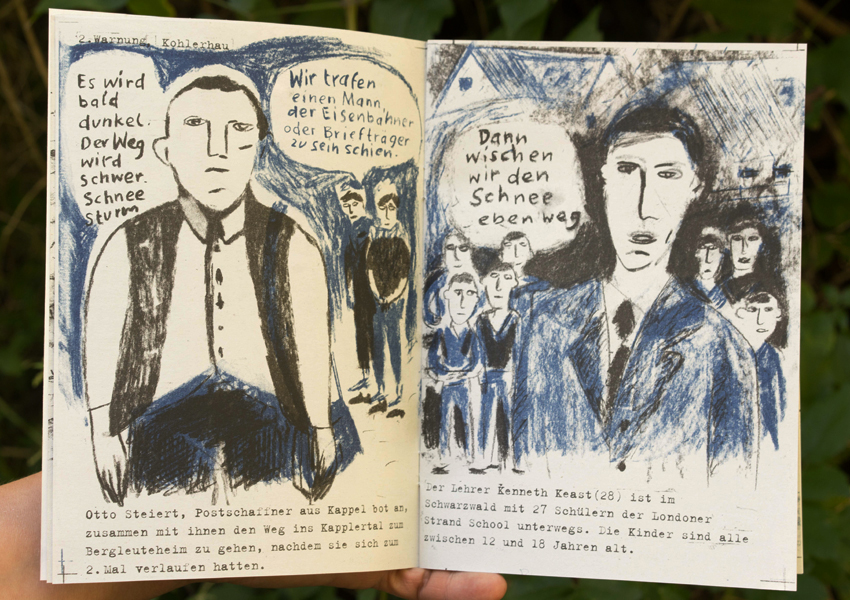 2.Warnung, Kohlerhau
Es wird
bald
dunkel.
Der Weg
wird
schwer.
Schnee
sturm
Wir trafen
einen Mann,
der Eisenbahner
oder Briefträger
zu sein schien.
Otto Steiert, Postschaffner aus Kappel bot an,
zusammen mit ihnen den Weg ins Kapplertal zum
Bergleuteheim zu gehen, nachdem sie sich zum
2.Mal verlaufen hatten.
Dann
wischen
wir den
Schnee
eben weg
Der Lehrer Kenneth Keast(28) ist im
Schwarzwald mit 27 Schülern der Londoner
Strand School unterwegs. Die Kinder sind alle
zwischen 12 und 18 Jahren alt.